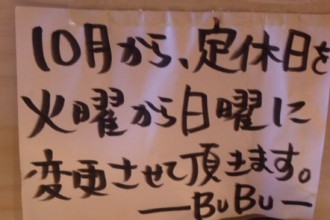 10月から、定休日を
火曜から日曜に
変更させて頂きます。
—BuBu—